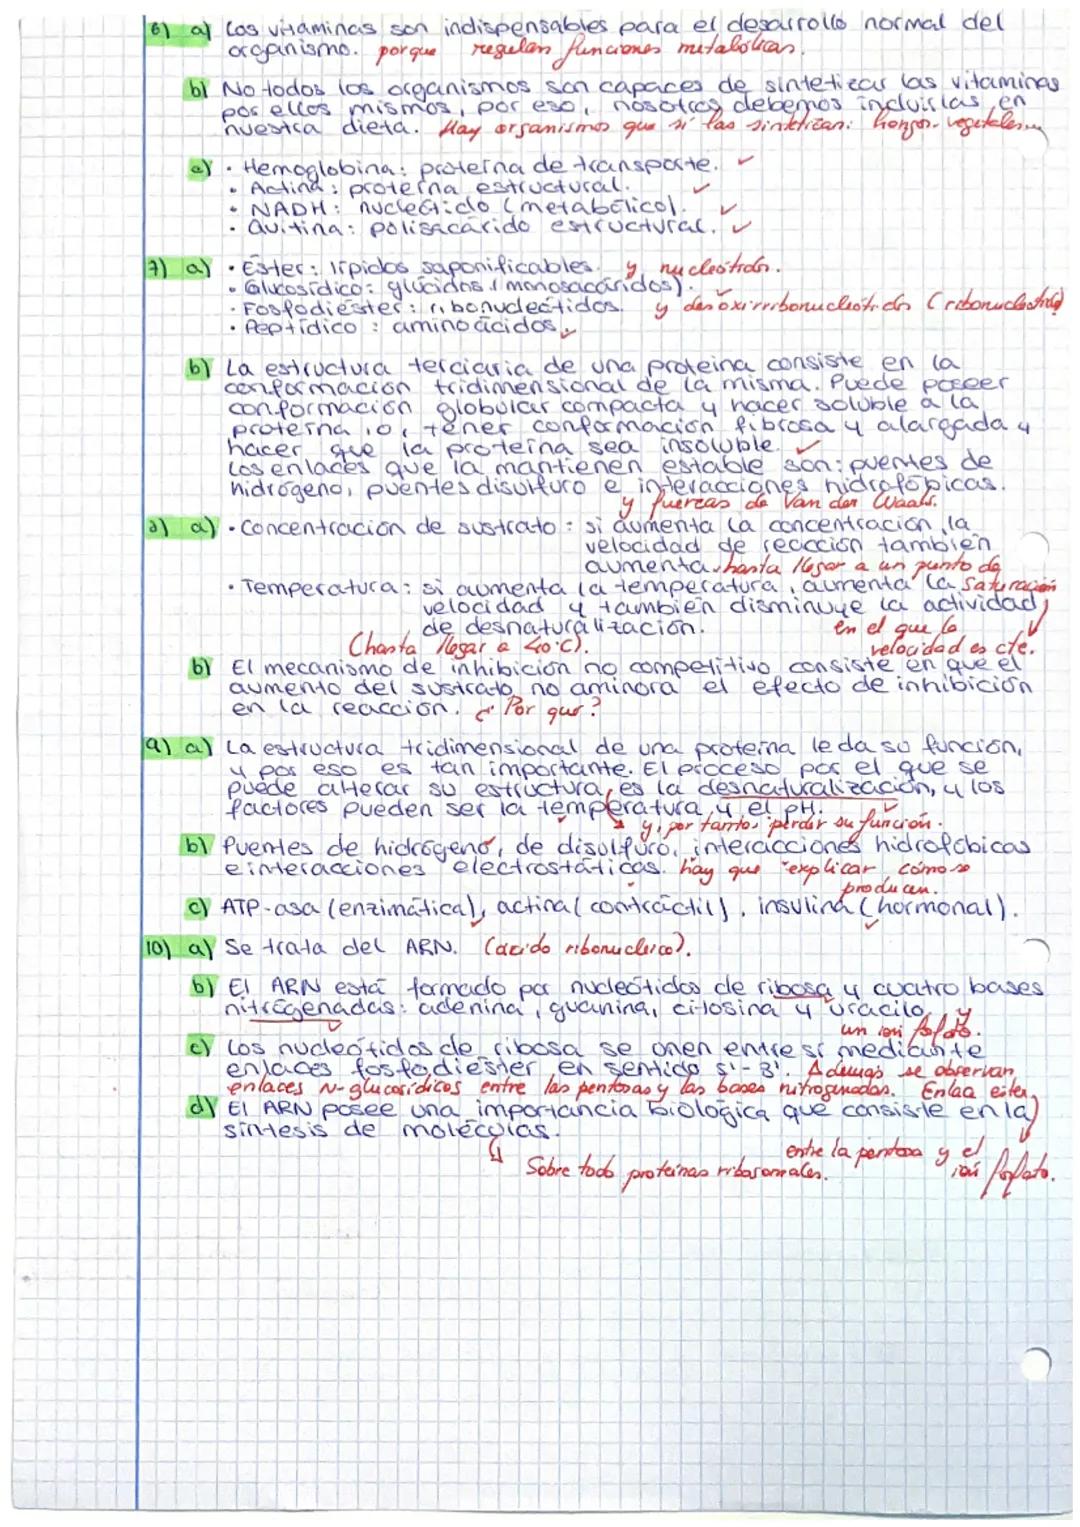 6) a) Las vitaminas son indispensables para el desarrollo normal del
organismo. porque regulan funciones metabólicas.
b) No todos los organismos son capaces de sintetizar las vitaminas
por ellos mismos, por eso, nosotros debemos incluirlas en
nuestra dieta. Hay organismos que sí las sintetizan: hongos, vegetales...
c) · Hemoglobina: proteína de transporte. ✓
· Actina: proteína estructural. ✓
· NADH: nucleótido (metabólico). ✓
· Quitina: polisacárido estructural. ✓
7) a) · Éster: lípidos saponificables. y nucleótidos.
· Glucosídico: glúcidos (monosacáridos). ✓
· Fosfodiéster: ribonucleótidos. y desoxirribonucleótidos (ribonucleótidos)
· Peptídico: aminoácidos. ✓
b) La estructura terciaria de una proteína consiste en la
conformación tridimensional de la misma. Puede poseer
conformación globular compacta y hacer soluble a la
proteína, o, tener conformación fibrosa y alargada y
hacer que la proteína sea insoluble. ✓
Los enlaces que la mantienen estable son: puentes de
hidrógeno, puentes disulfuro e interacciones hidrofóbicas.
y fuerzas de Van der Waals.
8) a) · Concentración de sustrato: si aumenta la concentración, la
velocidad de reacción también
aumenta. hasta llegar a un punto de
· Temperatura: si aumenta la temperatura, aumenta la saturación
velocidad y también disminuye la actividad
de desnaturalización. en el que la
(hasta llegar a 40°C). velocidad es cte.
b) El mecanismo de inhibición no competitivo consiste en que el
aumento del sustrato no aminora el efecto de inhibición
en la reacción. ¿Por qué?
9) a) La estructura tridimensional de una proteína le da su función,
y por eso es tan importante. El proceso por el que se
puede alterar su estructura, es la desnaturalización, y los
factores pueden ser la temperatura y el pH. ✓
y, por tanto, perder su función.
b) Puentes de hidrógeno, de disulfuro, interacciones hidrofóbicas
e interacciones electrostáticas. hay que explicar cómo se
producen.
c) ATP-asa (enzimática), actina (contráctil), insulina (hormonal).
10) a) Se trata del ARN. (ácido ribonucleico).
b) El ARN está formado por nucleótidos de ribosa y cuatro bases
nitrogenadas: adenina, guanina, citosina y uracilo, y
un ion fosfato.
c) Los nucleótidos de ribosa se unen entre sí mediante
enlaces fosfodiéster en sentido 5'-3'. Además se observan
enlaces N-glucosídicos entre las pentosas y las bases nitrogenadas. Enlace éster
d) El ARN posee una importancia biológica que consiste en la
síntesis de moléculas.
entre la pentosa y el
Sobre todo proteínas ribosomales. ion fosfato.